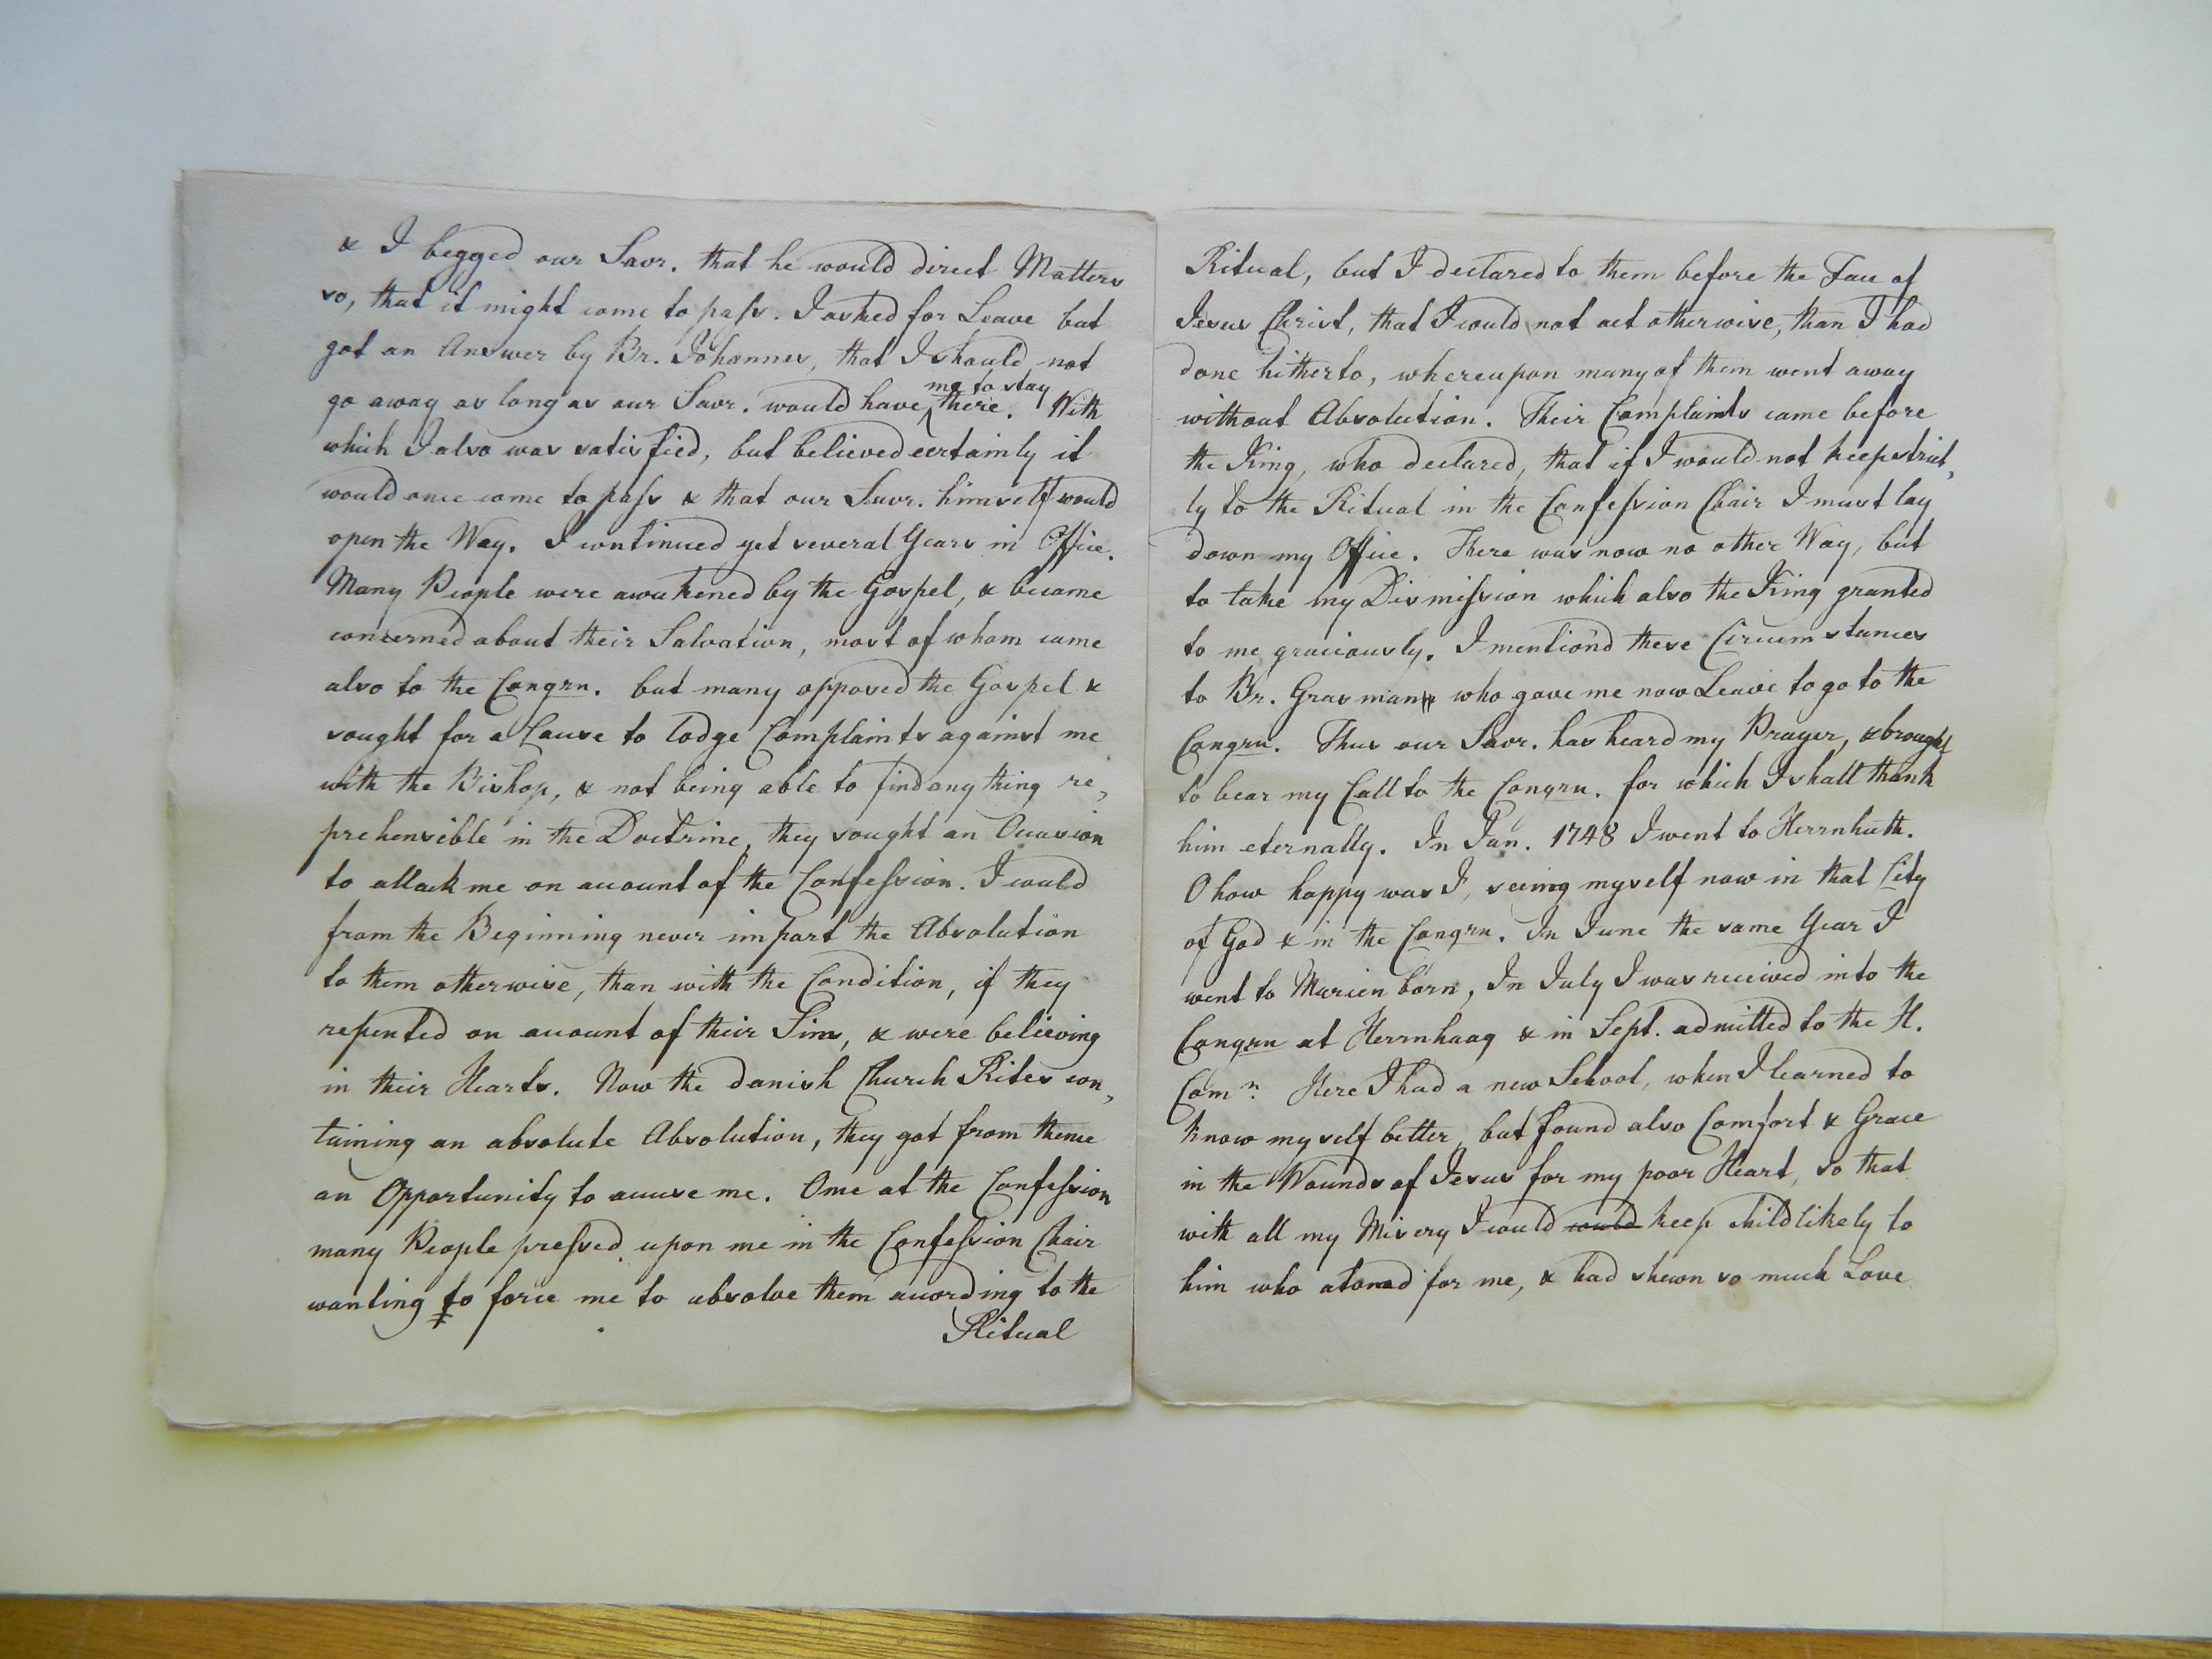 & I begged our Savr. that he would direct Matters
so, that it might come to pass. I asked for Leave but
got an Answer by Br. Johannes, that I should not
me to stay
go away as long as our Savr. would have there. With
which I also was satisfied, but believed certainly it
would once come to pass & that our Savr. himself would
open the Way. I continued yet several Years in Office.
Many People were awakened by the Gospel, & became
concerned about their Salvation, most of whom came
also to the Congrn. but many opposed the Gospel &
sought for a Cause to lodge Complaints against me
with the Bishop, & not being able to find any thing re,
prehensible in the Doctrine, they sought an Occasion
to attack me on account of the Confession. I would
from the Beginning never impart the Absolution
to them otherwise, than with the Condition, if they
repented on account of their Sins, & were believing
in their Hearts. Now the Danish Church Rites con,
taining an absolute Absolution, they got from thence
an Opportunity to accuse me. Once at the Confession
many People pressed upon me in the Confession Chair
wanting to force me to absolve them according to the
Ritual
Ritual, but I declared to them before the Face of
Jesus Christ, that I would not act otherwise, than I had
done hitherto, whereupon many of them went away
without Absolution. Their Complaints came before
the King, who declared, that if I would not keep strict,
ly to the Ritual in the Confession Chair I must lay
down my Office. There was now no other Way, but
to take my Dismission which also the King granted
to me graciously. I mention'd these Circumstances
to Br. Grasman who gave me now Leave to go to the
Congrn. Thus our Savr. has heard my Prayer, & brought
to bear my Call to the Congrn. for which I shall thank
him eternally. In Jan. 1748 I went to Herrnhuth.
O how happy was I, seeing myself now in that City
of God & in the Congrn. In June the same Year I
went to Marienborn, In July I was received into the
Congrn at Herrnhaag & in Sept. admitted to the H.
Comn. Here I had a new School, when I learned to
know myself better, but found also Comfort & Grace
in the Wounds of Jesus for my poor Heart, so that
with all my Misery I would could keep childlikely to
him who atoned for me, & had shewn so much Love